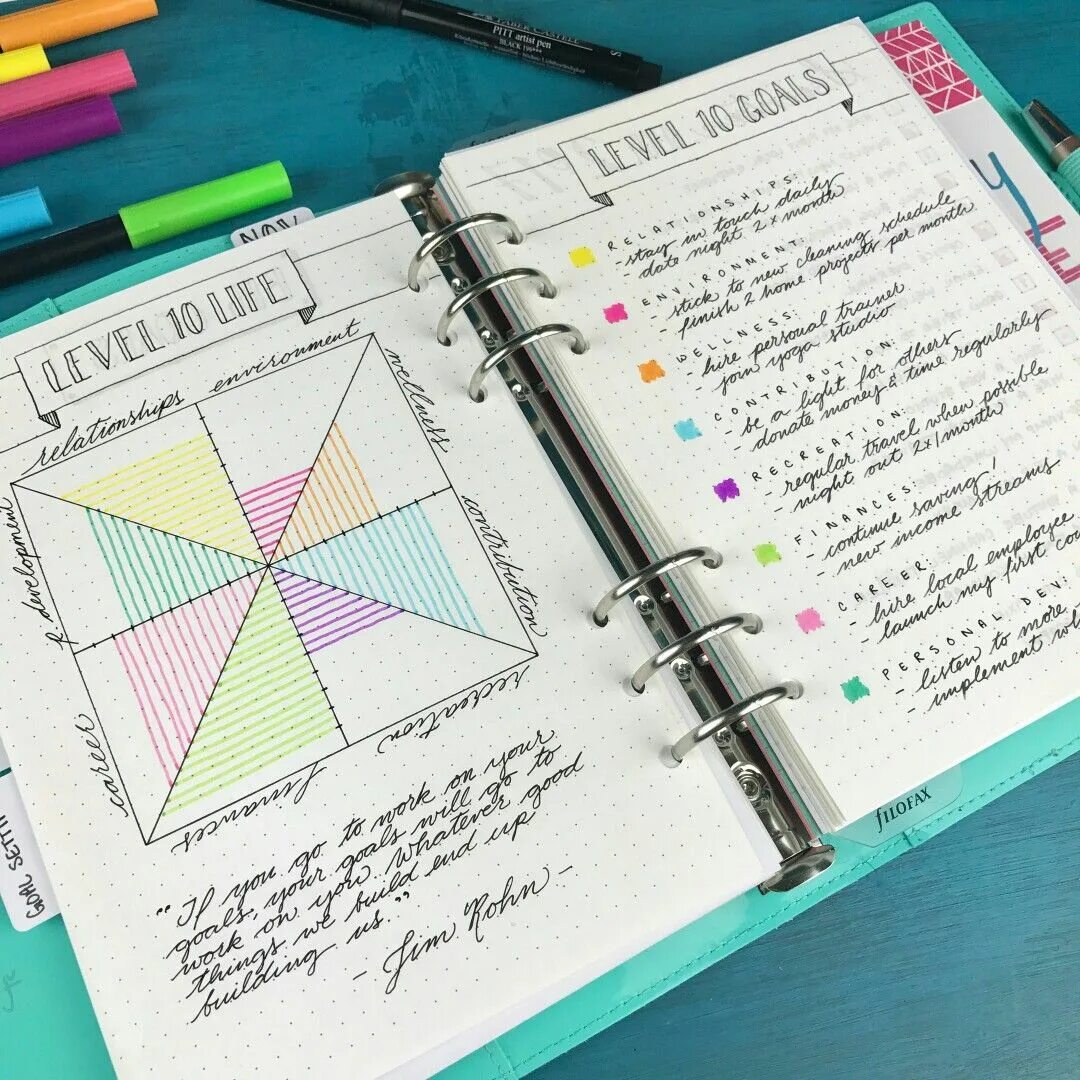 FABER-CASTELL
PITT artist pen
BLACK 199
S
NOV
LEVEL 10 LIFE
relationships
environment
wellness
contribution
recreation
finances
career
p. development
"If you go to work on your
goals, your goals will go to
work on you. Whatever good
things we build end up
building us."
- Jim Rohn -
GOAL SETTI
LEVEL 10 GOALS
RELATIONSHIPS:
- stay in touch daily
- date night 2x month
ENVIRONMENT:
- stick to new cleaning schedule
- finish 2 home projects per month
WELLNESS:
- hire personal trainer
- join yoga studio
CONTRIBUTION:
- be a light for others
- donate money & time regularly
RECREATION:
- regular travel when possible
- night out 2x/month
FINANCES:
- continue saving!
- new income streams
CAREER:
- hire local employee
- launch my first cou
PERSONAL DEV:
- listen to more
- implement wh
filofax